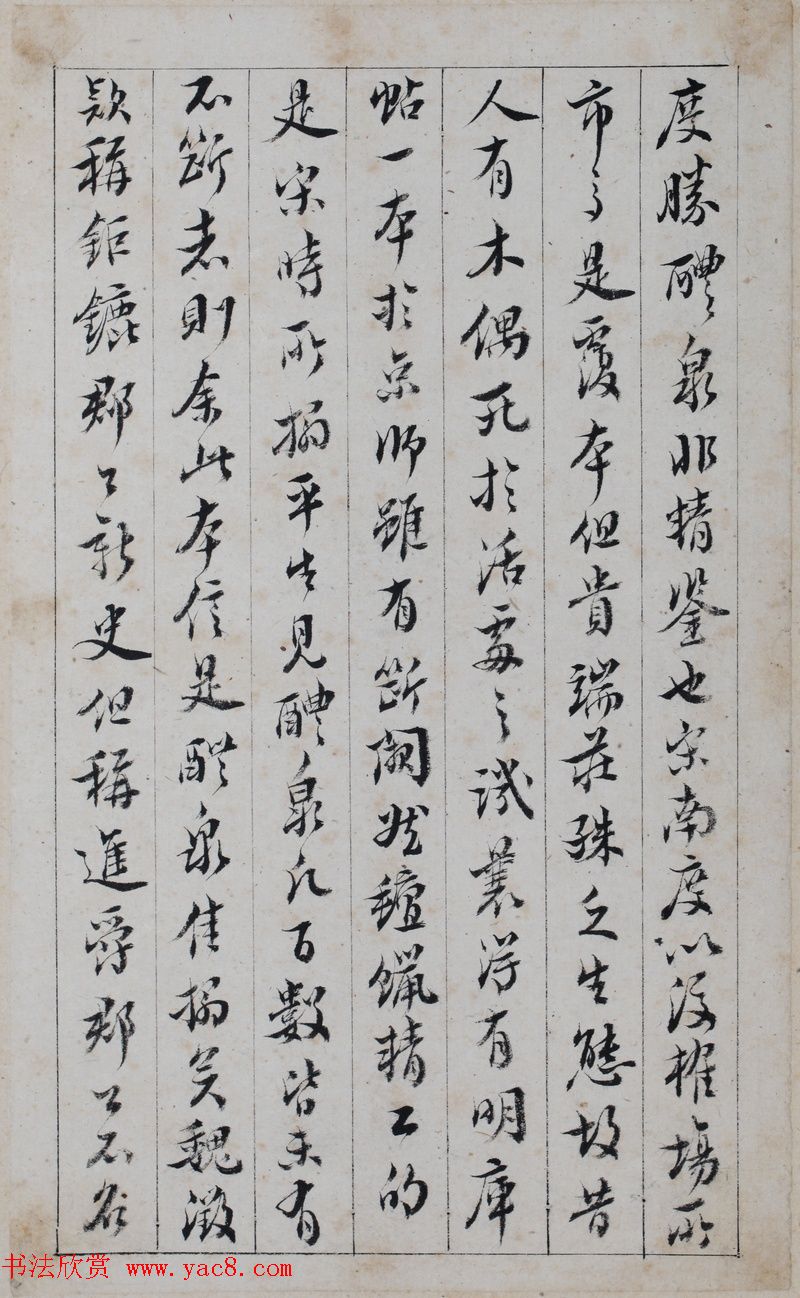 度勝醴泉非精鑒也宋南度以後榷場所
市多是覆本但貴端莊殊乏生態故昔
人有木偶死於活處之譏曩得有明庫
帖一本於京師雖有斷闕然氊蠟精工的
是宋時所搨平生見醴泉凡百數皆未有
不斷者則余此本信是醴泉佳搨矣魏徵
款稱鉅鏕郡公新史但稱進爵郡公不名
书法欣赏 www.yac8.com